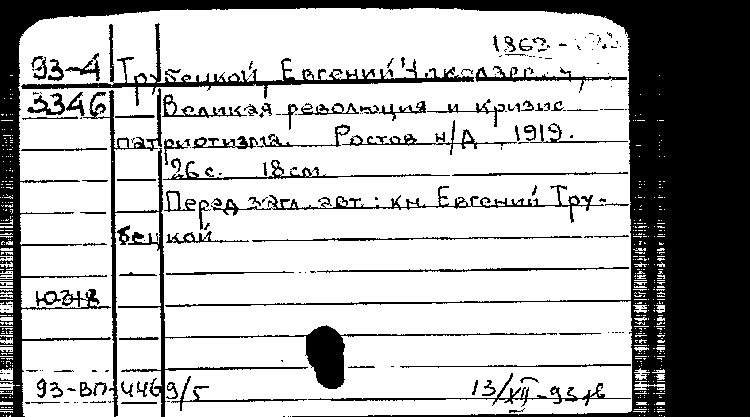 1863 -
93-4 Трубецкой, Евгений
3346 Великая революция и кризис
патриотизма. Ростов н/Д, 1919.
26 с. 18 см.
Перед загл. авт.: кн. Евгений Тру-
бецкой
93-ВП-4469/5 13/XII-93